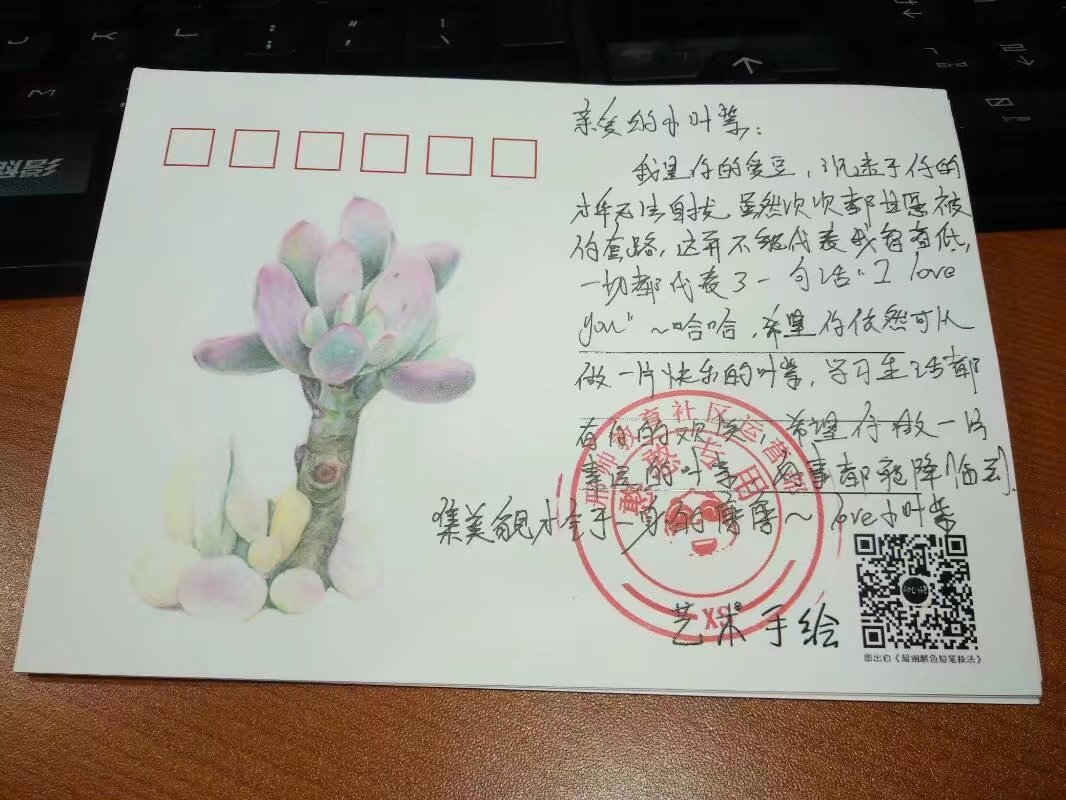 亲爱的小叶紫：
我是你的爱豆，沉迷于你的
水平无法自拔，虽然次次都甘愿被
你套路，这并不能代表我智商低，
一切都代表了一句话"I love
you"～哈哈，希望你依然可以
做一片快乐的叶紫，学习生活都
有你的欢笑，希望你做一片
幸运的叶紫，万事都能降(伍玉)。
集美貌才华于一身的 love小叶紫
教育社区运营部
专用
艺术手绘
图出自《超细腻色铅笔技法》